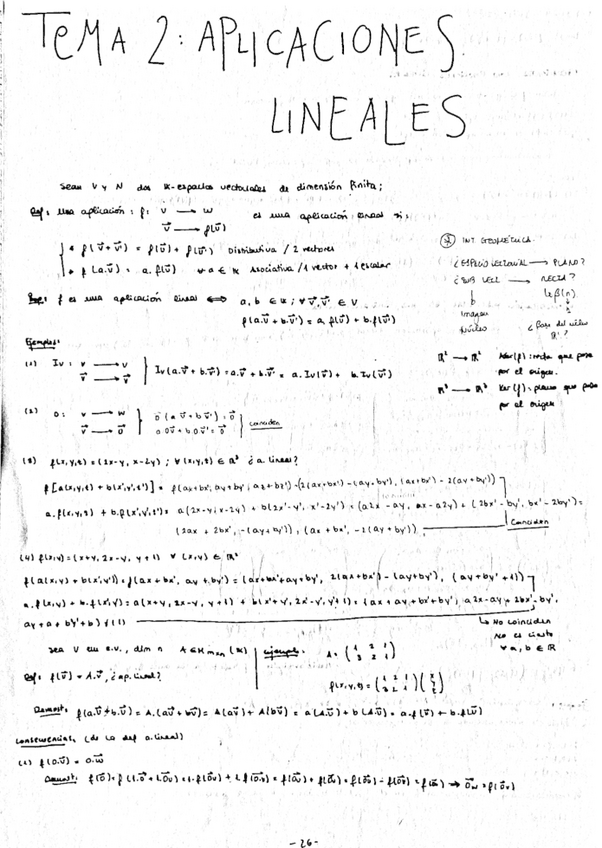 TEMA 2: APLICACIONES
LINEALES
Sean V y W dos K-espacios vectoriales de dimensión finita;
Def: Una aplicación: f: V → W es una aplicación lineal si:
v⃗ → f(v⃗)
* f(v⃗+v⃗') = f(v⃗)+f(v⃗') Distributiva / 2 vectores
* f(a.v⃗) = a.f(v⃗) ∀a ∈ K Asociativa / 1 vector + 1 escalar
f es una aplicación lineal ⟺ a, b ∈ K; ∀ v⃗, v⃗' ∈ V
f(a.v⃗+b.v⃗') = a.f(v⃗)+b.f(v⃗')
INT GEOMÉTRICA.
¿ESPACIO VECTORIAL → PLANO?
¿SUB VECT → RECTA?
Imagen
Núcleo
¿Base del núcleo
ℝ² → ℝ² Ker(f): recta que pasa
por el origen.
ℝ³ → ℝ³ Ker(f): plano que pasa
por el origen
Ejemplos:
(1) Iv: V → V
v⃗ → v⃗
Iv(a.v⃗+b.v⃗') = a.v⃗+b.v⃗' = a.Iv(v⃗)+b.Iv(v⃗')
(2) 0: V → W
v⃗ → 0⃗
0(a v⃗+b v⃗') = 0⃗
a 0v⃗+b 0v⃗' = 0⃗
Coinciden
(3) f(x,y,t) = (2x-y, x-2y); ∀(x,y,t) ∈ ℝ³ ¿a. lineal?
f[a(x,y,t)+b(x',y',t')] = f(ax+bx', ay+by', at+bt') = (2(ax+bx')-(ay+by'), (ax+bx')-2(ay+by'))
a.f(x,y,t)+b.f(x',y',t') = a(2x-y, x-2y)+b(2x'-y', x'-2y') = (a2x-ay, ax-a2y)+(2bx'-by', bx'-2by') =
(2ax+2bx', -(ay+by')), (ax+bx', -2(ay+by'))
Coinciden
(4) f(x,y) = (x+y, 2x-y, y+1) ∀(x,y) ∈ ℝ²
f(a(x,y)+b(x',y')) = f(ax+bx', ay+by') = (ax+bx'+ay+by', 2(ax+bx')-(ay+by'), (ay+by'+1))
a.f(x,y)+b.f(x',y') = a(x+y, 2x-y, y+1)+b(x'+y', 2x'-y', y'+1) = (ax+ay+bx'+by', a2x-ay+2bx'-by',
ay+a+by'+b)
No coinciden
No es cierto
∀a, b ∈ ℝ
Sea V un e.v., dim n A ∈ Mmxn(K)
Def: f(v⃗) = A.v⃗, ¿ap. lineal?
Ejemplo: A = (1 2 1
3 2 1)
f(x,y,z) = (1 2 1
3 2 1)(x
y
z)
Demost: f(a.v⃗+b.v⃗') = A.(av⃗+bv⃗') = A(av⃗)+A(bv⃗') = a(Av⃗)+b(Av⃗') = a.f(v⃗)+b.f(v⃗')
Consecuencias: (de la def a.lineal)
(1) f(0v⃗) = 0w⃗
- 26 -